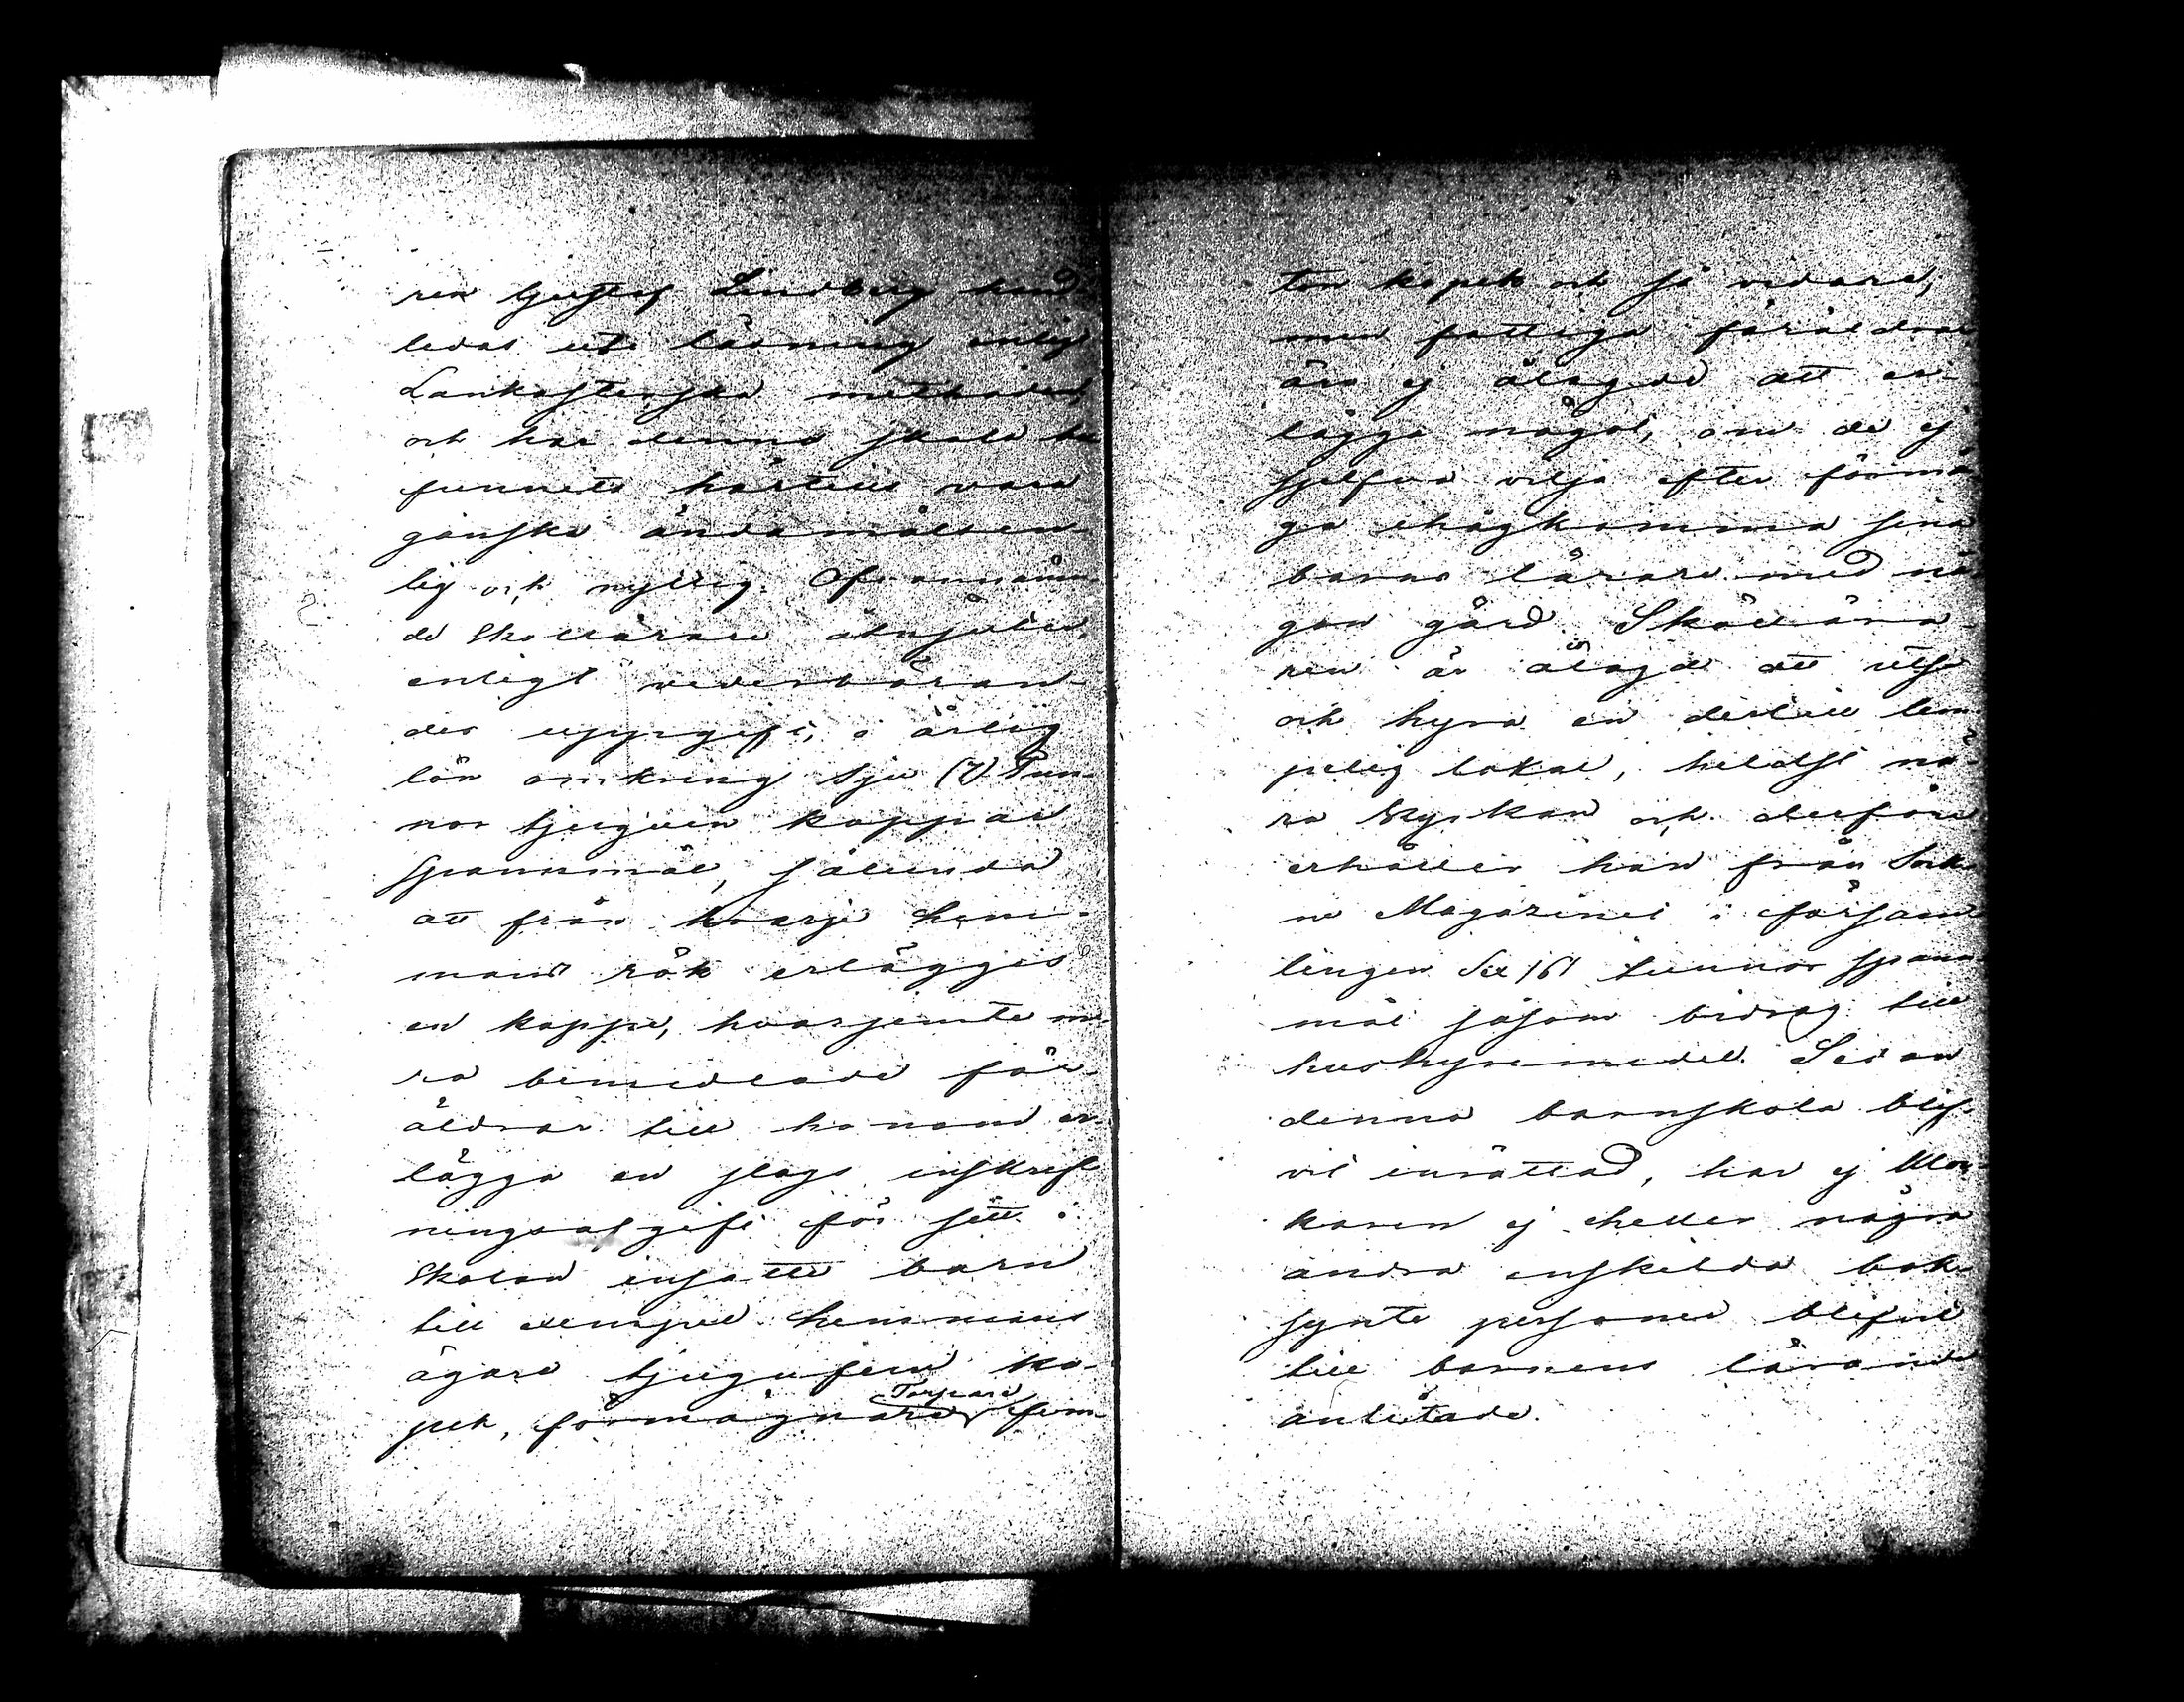 ren Gustaf Lindberg hand-
ledas uti läsning enligt
Lankasterska methoden
och har denna skola be
funnits härtills vara
ganska ändamålsen-
lig och nyttig. Ofvannämn-
de Skollärare åtnjuter,
enligt vederböran-
des uppgift, i årlig
lön omkring sju (7) Tun-
nor tjuguen kappar
Spannmål, sålunda
att från hvarje hem-
mans rök erlägges
en kappe, hvarjemte me-
ra bemedlade för-
äldrar till honom er-
lägga en slags inskrif
ningsafgift för sitt i
Skolan insatte barn
till exempel hemmans
ägare tjugufem ko-
pek, förmögnare Torpare fem-
ton kopek och så vidare,
men fattiga föräldrar
äro ej ålagde att er-
lägga något, om de ej
sjelfva vilja efter förmå
ga ihågkomma sina
barns lärare med nå
gon gärd. Skollära-
ren är ålagd att utse
och hyra en dertill läm
pelig lokal, heldst nä-
ra Kyrkan och derföre
erhåller han från Sock-
ne Magazinet i försam-
lingen Sex /6/ tunnor spann-
mål såsom bidrag till
hushyremedel. Sedan
denna barnskola blif-
vit inrättad, har ej Kloc-
karen ej heller några
andra enskilda bok-
synte personer blifvit
till barnens lärande
anlitade.